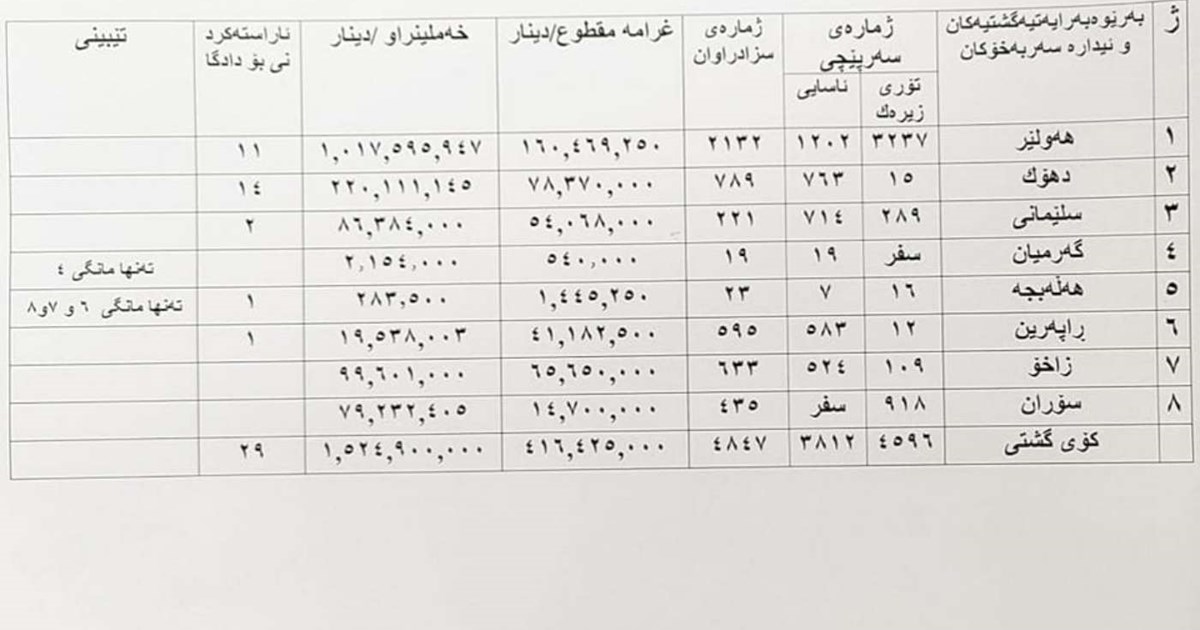 ژ بەرێوەبەرایەتیەگشتیەکان و ئیدارە سەربەخۆکان ژمارەی سەرپێچی ژمارەی سزادراوان غرامە مقطوع/دینار خەملینراو /دینار ئاراستەکرد نی بۆ دادگا تێبینی
تۆری زیرەك ئاسایی
١ هەولێر ٣٢٣٧ ١٢٠٢ ٢١٣٢ ١٦٠,٤٦٩,٢٥٠ ١,٠١٧,٥٩٥,٩٤٧ ١١
٢ دهۆك ١٥ ٧٦٣ ٧٨٩ ٧٨,٣٧٠,٠٠٠ ٢٢٠,١١١,١٤٥ ١٤
٣ سلێمانی ٢٨٩ ٧١٤ ٢٢١ ٥٤,٠٦٨,٠٠٠ ٨٦,٣٨٤,٠٠٠ ٢
٤ گەرمیان سفر ١٩ ١٩ ٥٤٠,٠٠٠ ٢,١٥٤,٠٠٠ تەنها مانگی ٤
٥ هەڵەبجە ١٦ ٧ ٢٣ ١,٤٤٥,٢٥٠ ٢٨٣,٥٠٠ ١ تەنها مانگی ٦ و ٧و٨
٦ ڕاپەرین ١٢ ٥٨٣ ٥٩٥ ٤١,١٨٢,٥٠٠ ١٩,٥٣٨,٠٠٣ ١
٧ زاخۆ ١٠٩ ٥٢٤ ٦٣٣ ٦٥,٦٥٠,٠٠٠ ٩٩,٦٠١,٠٠٠
٨ سۆران ٩١٨ سفر ٤٣٥ ١٤,٧٠٠,٠٠٠ ٧٩,٢٣٢,٤٠٥
کۆی گشتی ٤٥٩٦ ٣٨١٢ ٤٨٤٧ ٤١٦,٤٢٥,٠٠٠ ١,٥٢٤,٩٠٠,٠٠٠ ٢٩